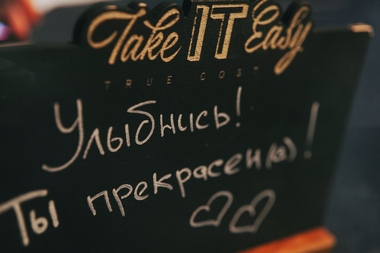 Take IT Easy
TRUE COST
Улыбнись!
Ты прекрасен(а)!